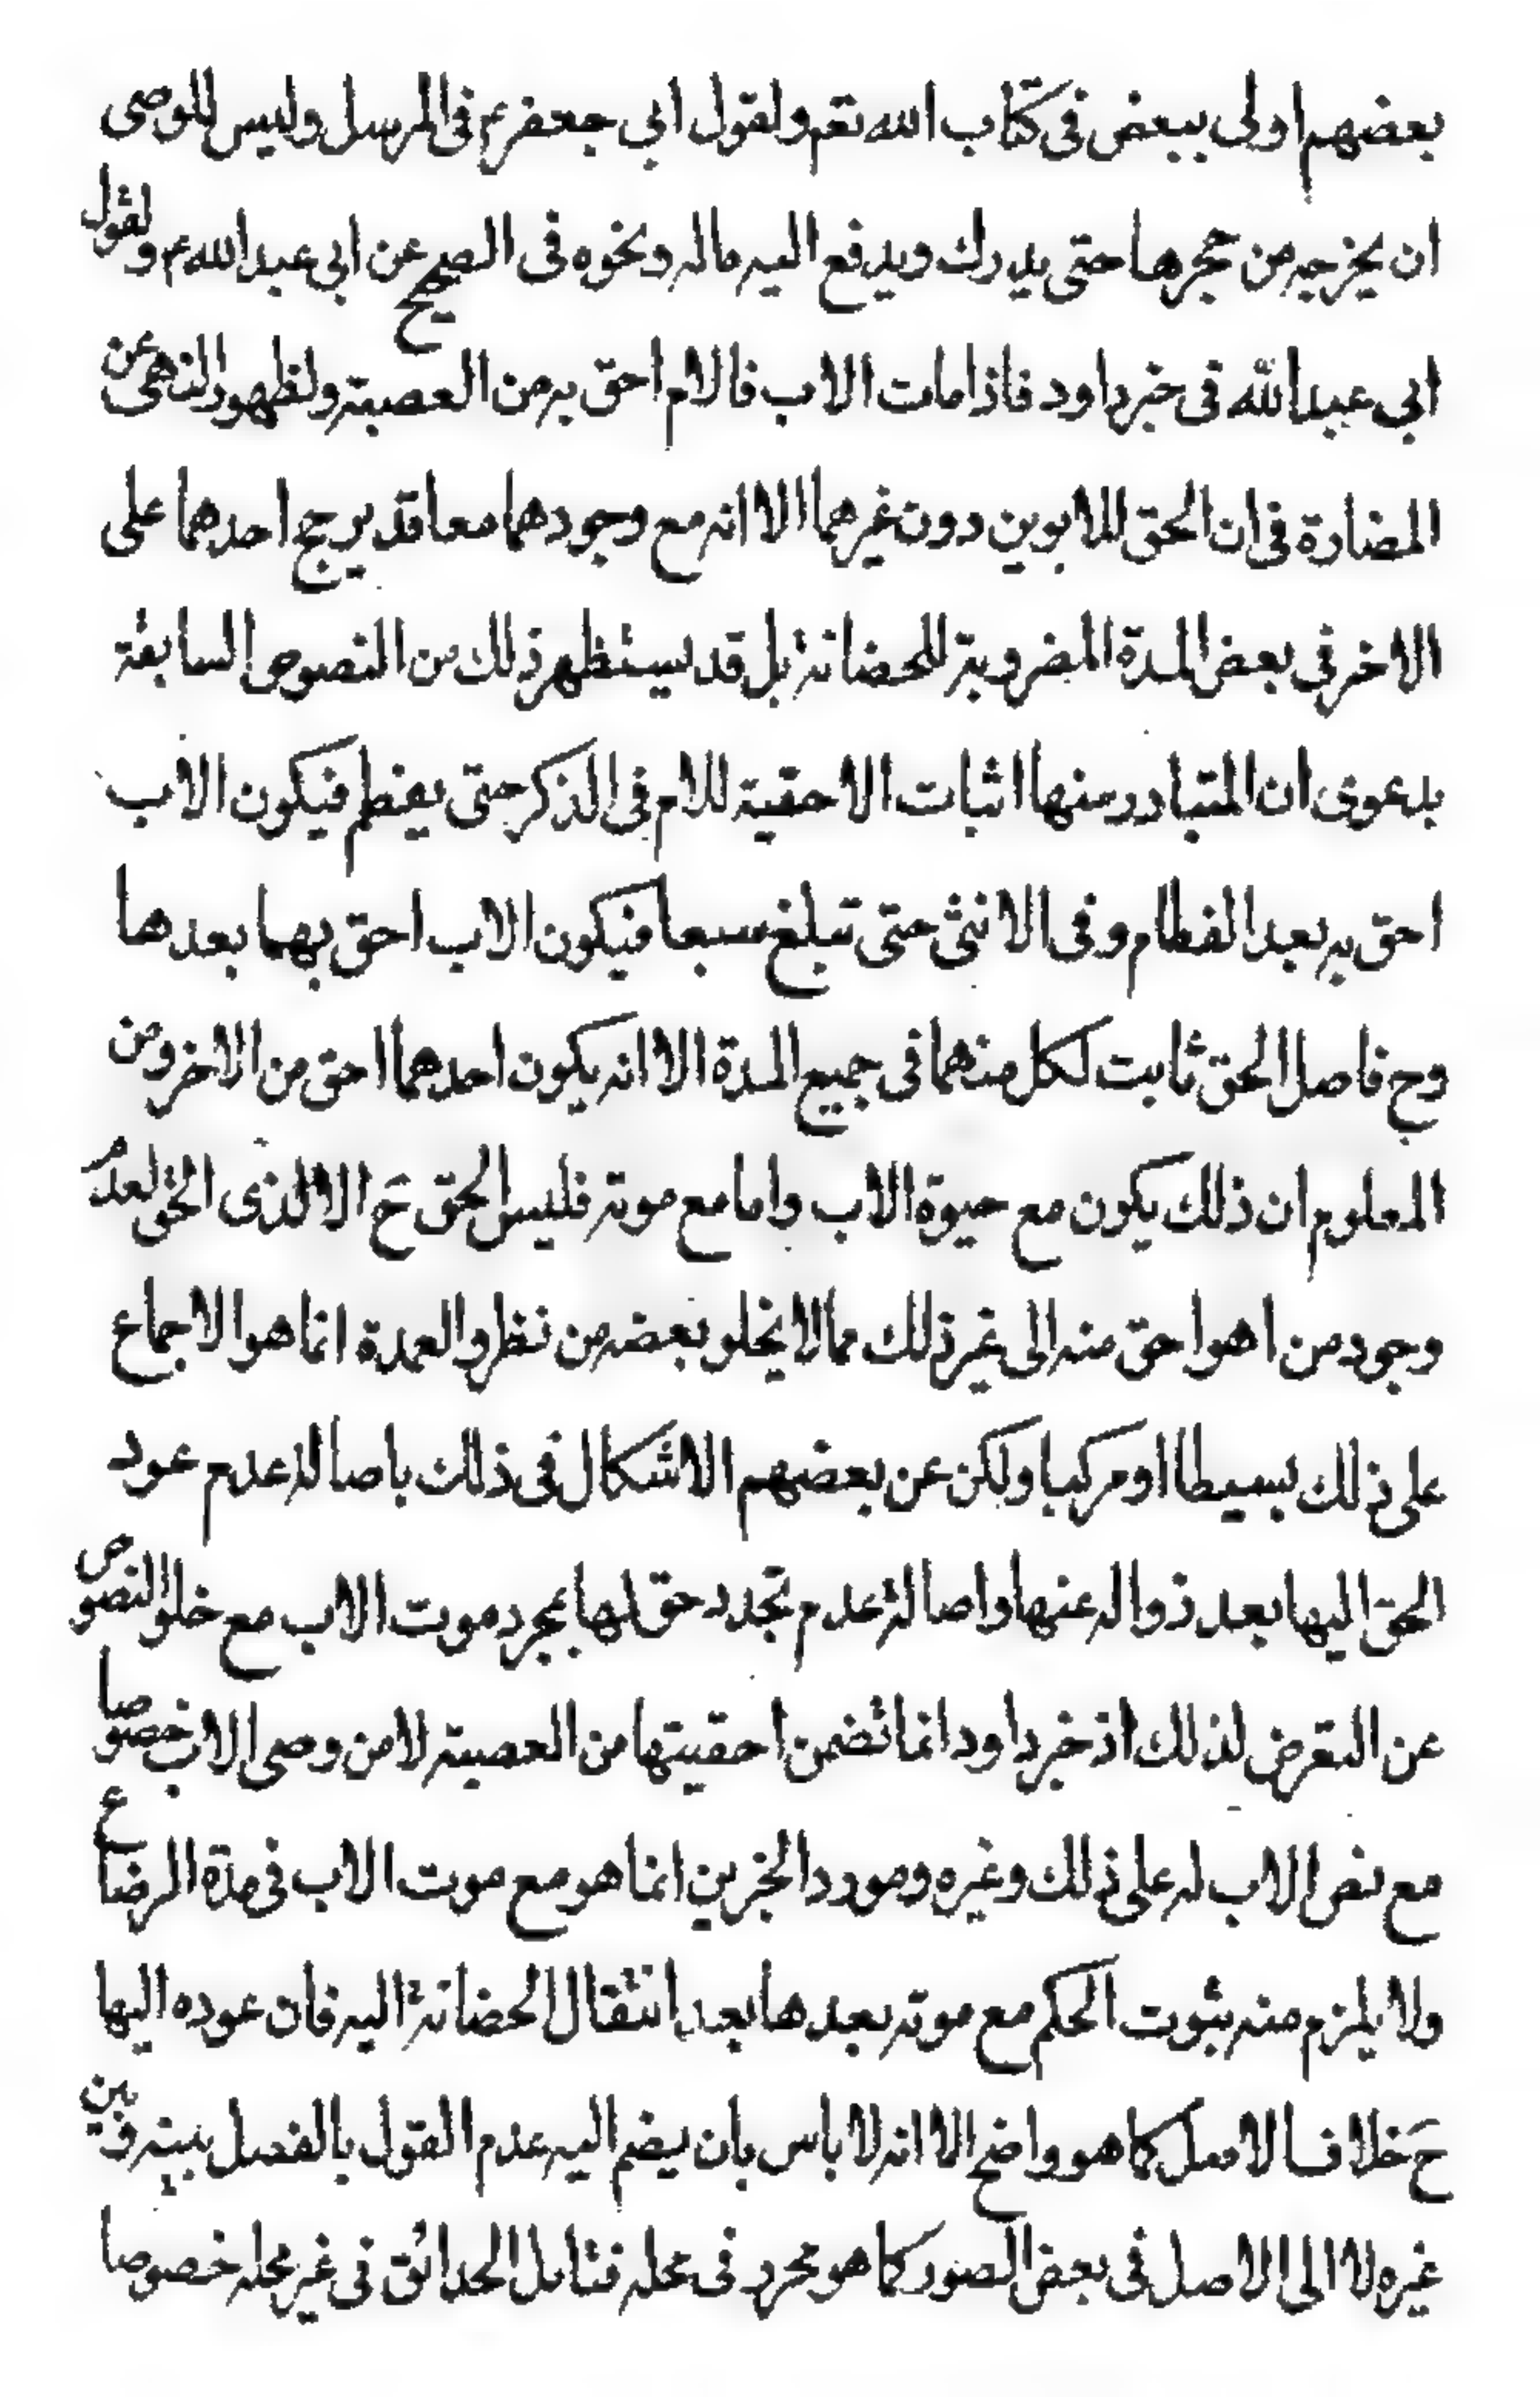 بعضهم اولى ببعض فى كتاب الله تعم ولقول ابي جعفر عم فى المرسل وليس للوصى
ان يخرجه من حجرها حتى يدرك ويدفع اليه ماله ونحوه فى الصحيح عن ابى عبد الله عم ولقول
ابي عبد الله فى خبر داود فاذا مات الاب فالام احق به من العصبة ولظهور النهى عن
المضارة فى ان الحق للابوين دون غيرهما الا انه مع وجودهما معا قد يرجح احدهما على
الاخر فى بعض المدة المضروبة للحضانة بل قد يستظهر ذلك من النصوص السابقة
بدعوى ان المتبادر منها اثبات الاحقية للام فى الذكر حتى يفطم فيكون الاب
احق به بعد الفطام وفى الانثى حتى تبلغ سبعا فيكون الاب احق بهما بعدها
وح فاصل الحق ثابت لكل منهما فى جميع المدة الا انه يكون احدهما احق من الاخر ومن
المعلوم ان ذلك يكون مع حيوة الاب واما مع موته فليس الحق ح الا لذى الحق لعدم
وجود من اهو احق منه الى غير ذلك مما لا يخلو بعضه من نظر والعمدة انما هو الاجماع
على ذلك بسيطا او مركبا ولكن عن بعضهم الاشكال فى ذلك باصالة عدم عود
الحق اليها بعد زواله عنها واصالة عدم تجدد حق لها بمجرد موت الاب مع خلو النصوص
عن التعرض لذلك اذ خبر داود انما تضمن احقيتها من العصبة لا من وصى الاب خصوصا
مع نص الاب له على ذلك وغيره ومورد الخبرين انما هو مع موت الاب فى مدة الرضاع
ولا يلزم منه ثبوت الحكم مع موته بعدها بعد انتقال الحضانة اليه فان عوده اليها
ح خلاف الاصل كما هو واضح الا انه لا باس بان يضم اليه عدم القول بالفصل بينه وبين
غيره لا الى الاصل فى بعض الصور كما هو محرر فى محله فتامل الحدائق فى غير محله خصوصا